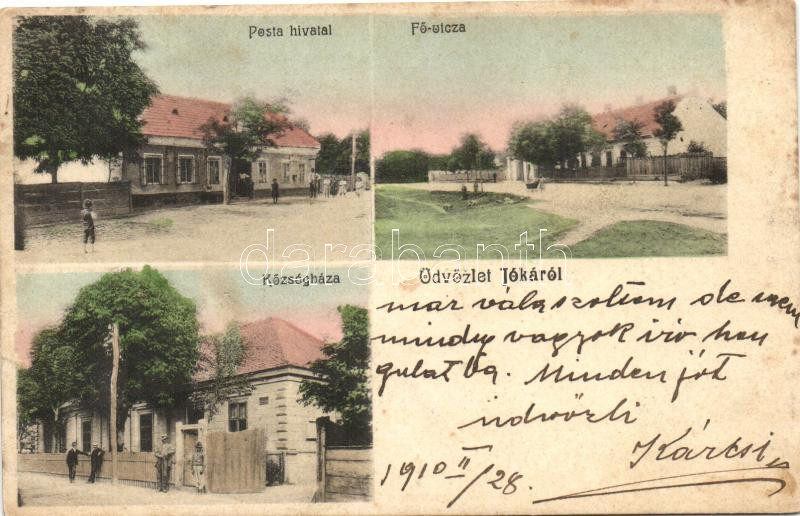 Posta hivatal
Fő-utcza
Községháza
Üdvözlet Jókáról
már válaszoltam de nem
mindig vagyok író han
gulatba. Minden jót
üdvözli
Károlsi
1910 II/28.
darabanth